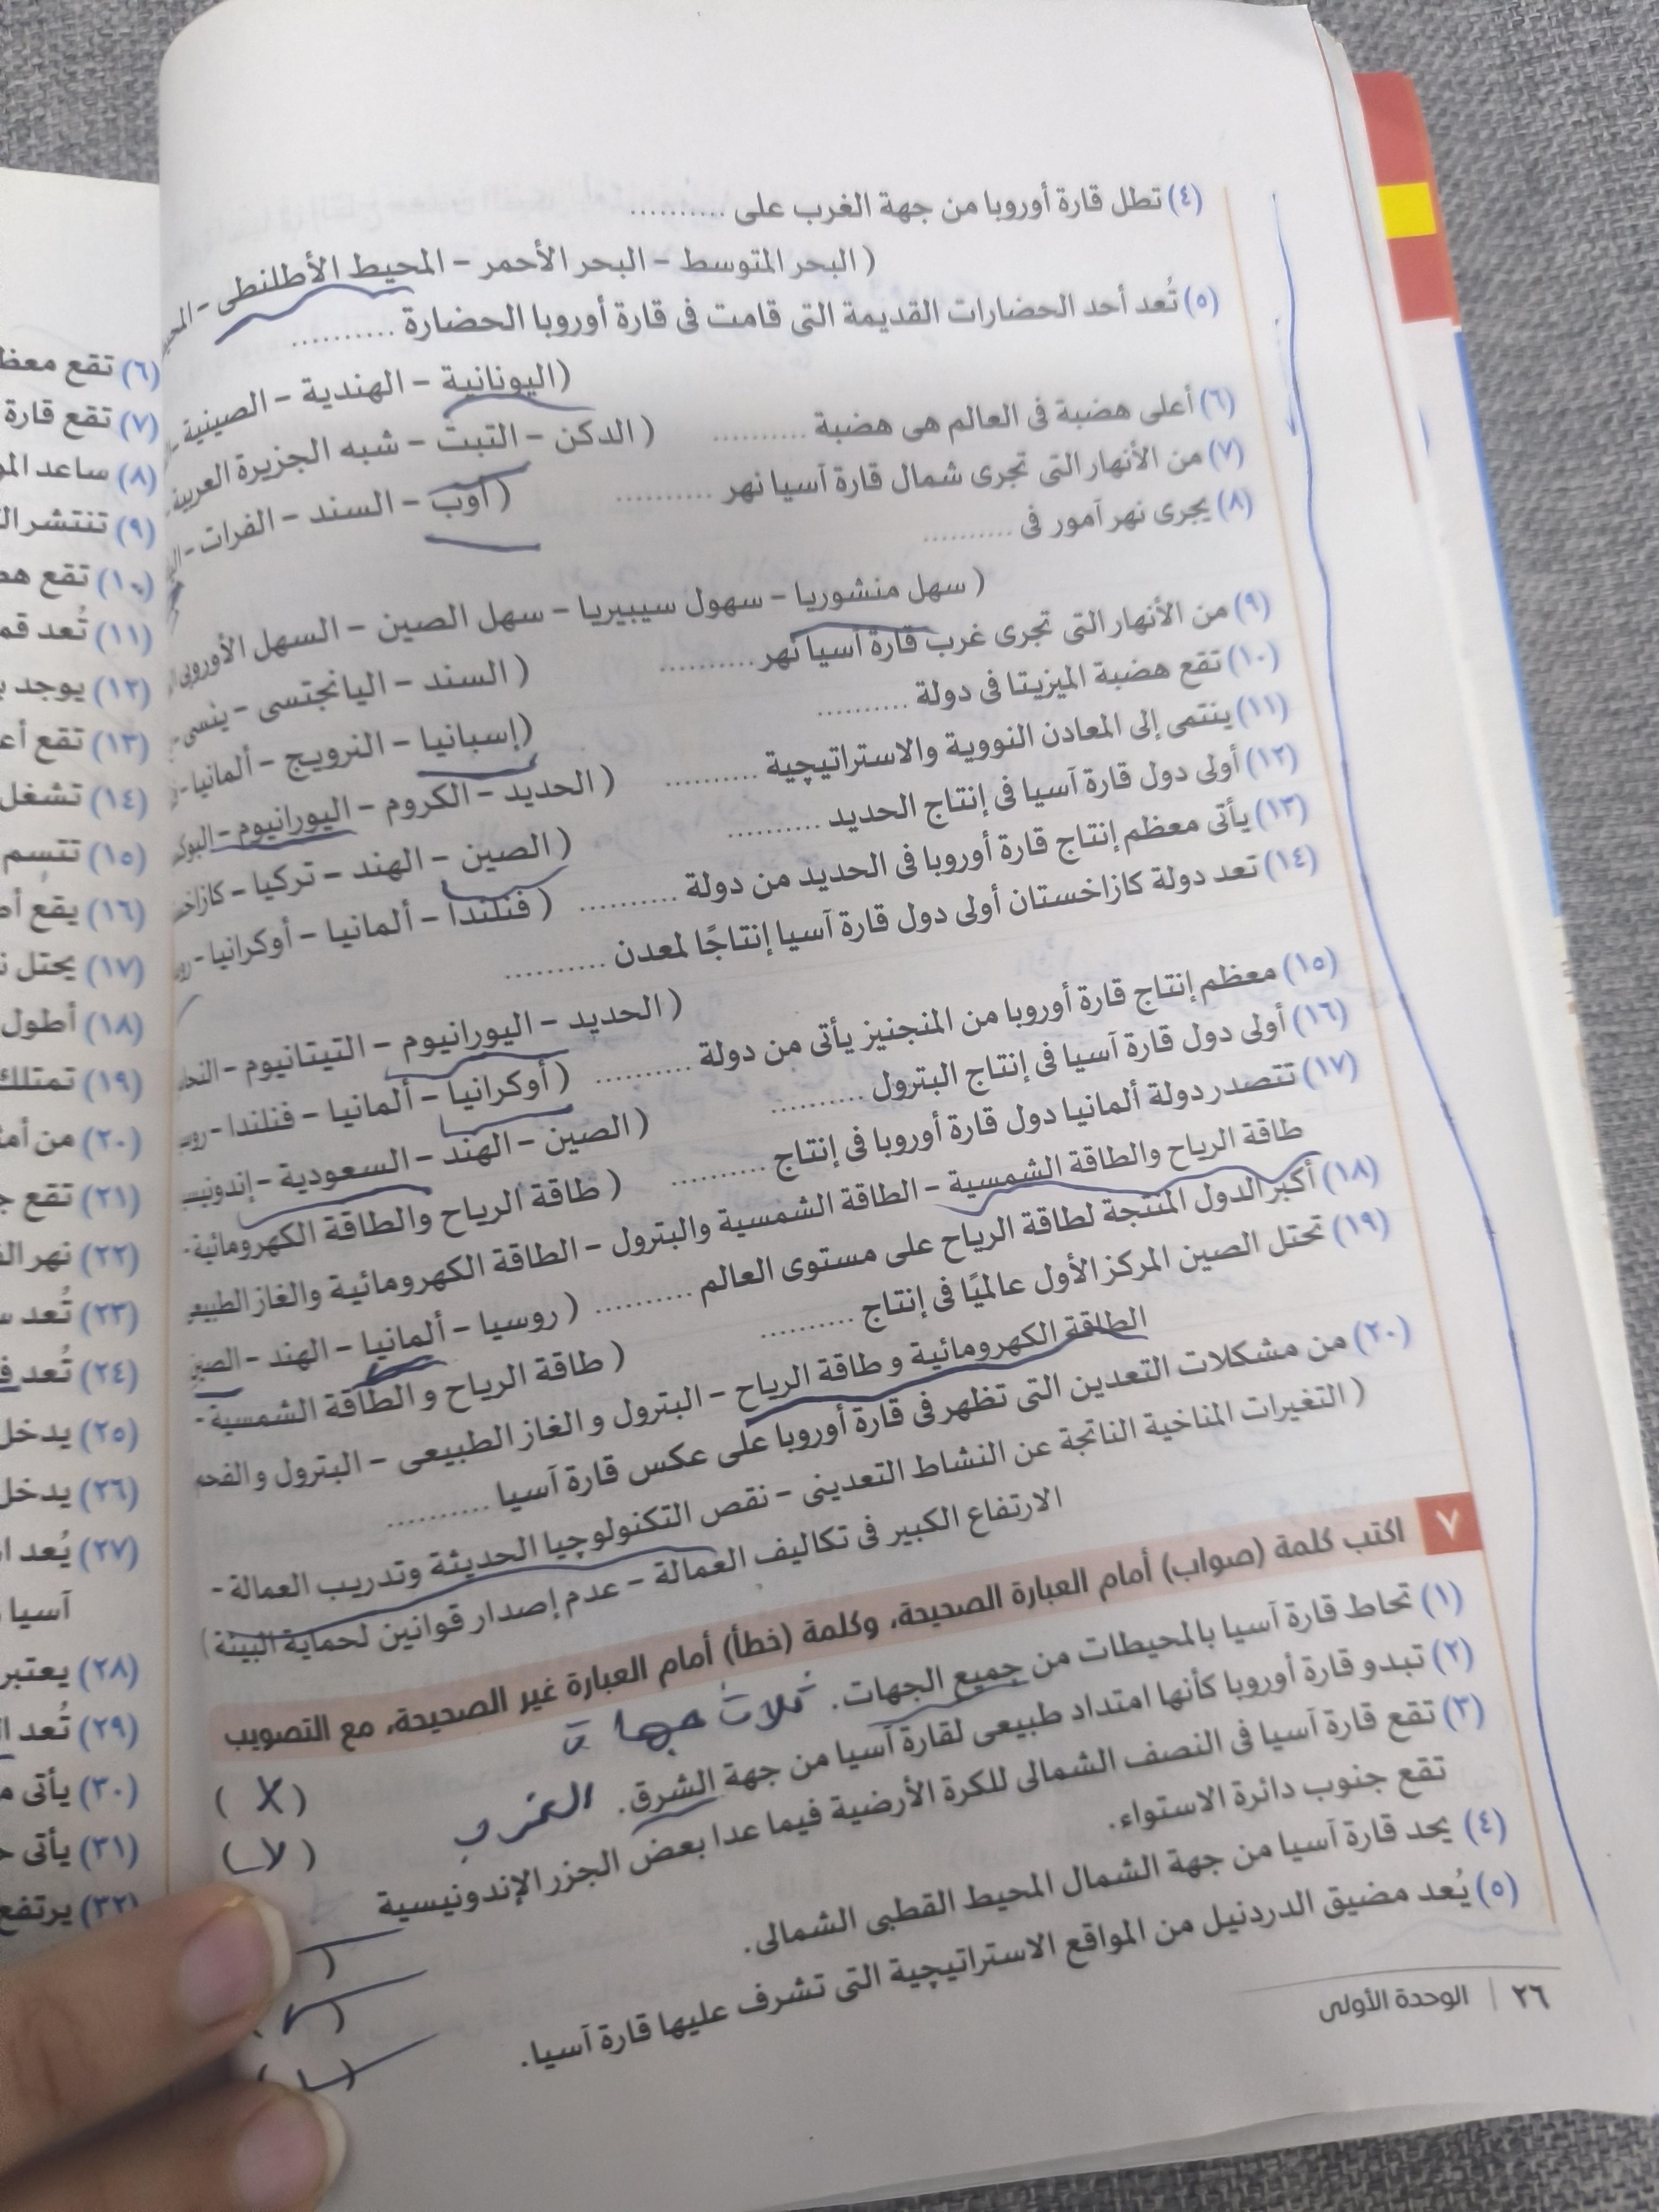 (٤) تطل قارة أوروبا من جهة الغرب على ..........
( البحر المتوسط - البحر الأحمر - المحيط الأطلنطى -
(٥) تُعد أحد الحضارات القديمة التى قامت فى قارة أوروبا الحضارة ..........
(اليونانية - الهندية - الصينية -
(٦) أعلى هضبة فى العالم هى هضبة .......... ( الدكن - التبت - شبه الجزيرة العربية
(٧) من الأنهار التى تجرى شمال قارة آسيا نهر .......... ( أوب - السند - الفرات -
(٨) يجرى نهر آمور فى ..........
( سهل منشوريا - سهول سيبيريا - سهل الصين - السهل الأوروبى
(٩) من الأنهار التى تجرى غرب قارة آسيا نهر .......... ( السند - اليانجتسى - ينسى -
(١٠) تقع هضبة الميزيتا فى دولة .......... (إسبانيا - النرويج - ألمانيا -
(١١) ينتمى إلى المعادن النووية والاستراتيچية .......... ( الحديد - الكروم - اليورانيوم -
(١٢) أولى دول قارة آسيا فى إنتاج الحديد .......... ( الصين - الهند - تركيا -
(١٣) يأتى معظم إنتاج قارة أوروبا فى الحديد من دولة .......... ( فنلندا - ألمانيا - أوكرانيا -
(١٤) تعد دولة كازاخستان أولى دول قارة آسيا إنتاجًا لمعدن ..........
( الحديد - اليورانيوم - التيتانيوم -
(١٥) معظم إنتاج قارة أوروبا من المنجنيز يأتى من دولة .......... ( أوكرانيا - ألمانيا - فنلندا -
(١٦) أولى دول قارة آسيا فى إنتاج البترول .......... ( الصين - الهند - السعودية -
(١٧) تتصدر دولة ألمانيا دول قارة أوروبا فى إنتاج .......... ( طاقة الرياح والطاقة الكهرومائية -
طاقة الرياح والطاقة الشمسية - الطاقة الشمسية والبترول - الطاقة الكهرومائية والغاز
(١٨) أكبر الدول المنتجة لطاقة الرياح على مستوى العالم .......... ( روسيا - ألمانيا - الهند -
(١٩) تحتل الصين المركز الأول عالميًا فى إنتاج .......... ( طاقة الرياح و الطاقة الشمسية -
الطاقة الكهرومائية و طاقة الرياح - البترول و الغاز الطبيعى - البترول و
(٢٠) من مشكلات التعدين التى تظهر فى قارة أوروبا على عكس قارة آسيا ..........
( التغيرات المناخية الناتجة عن النشاط التعدينى - نقص التكنولوجيا الحديثة وتدريب العمالة -
الارتفاع الكبير فى تكاليف العمالة - عدم إصدار قوانين لحماية البيئة )
٧ اكتب كلمة (صواب) أمام العبارة الصحيحة، وكلمة (خطأ) أمام العبارة غير الصحيحة، مع التصويب
(١) تحاط قارة آسيا بالمحيطات من جميع الجهات. ثلاث جهات ( X )
(٢) تبدو قارة أوروبا كأنها امتداد طبيعى لقارة آسيا من جهة الشرق. الغرب ( )
(٣) تقع قارة آسيا فى النصف الشمالى للكرة الأرضية فيما عدا بعض الجزر الإندونيسية
تقع جنوب دائرة الاستواء.
(٤) يحد قارة آسيا من جهة الشمال المحيط القطبى الشمالى.
(٥) يُعد مضيق الدردنيل من المواقع الاستراتيچية التى تشرف عليها قارة آسيا.
٢٦ | الوحدة الأولى
(٦) تقع
(٧) تقع قارة
(٨) ساعد
(٩) تنتشر
(١٠) تقع
(١١) تُعد
(١٢) يوجد
(١٣) تقع
(١٤) تشغل
(١٥) تتسم
(١٦) يقع
(١٧) يحتل
(١٨) أطول
(١٩) تمتلك
(٢٠) من
(٢١) تقع
(٢٢) نهر
(٢٣) تُعد
(٢٤) تُعد
(٢٥) يدخل
(٢٦) يدخل
(٢٧) يُعد
آسيا
(٢٨) يعتبر
(٢٩) تُعد
(٣٠) يأتى
(٣١) يأتى
(٣٢) يرتفع